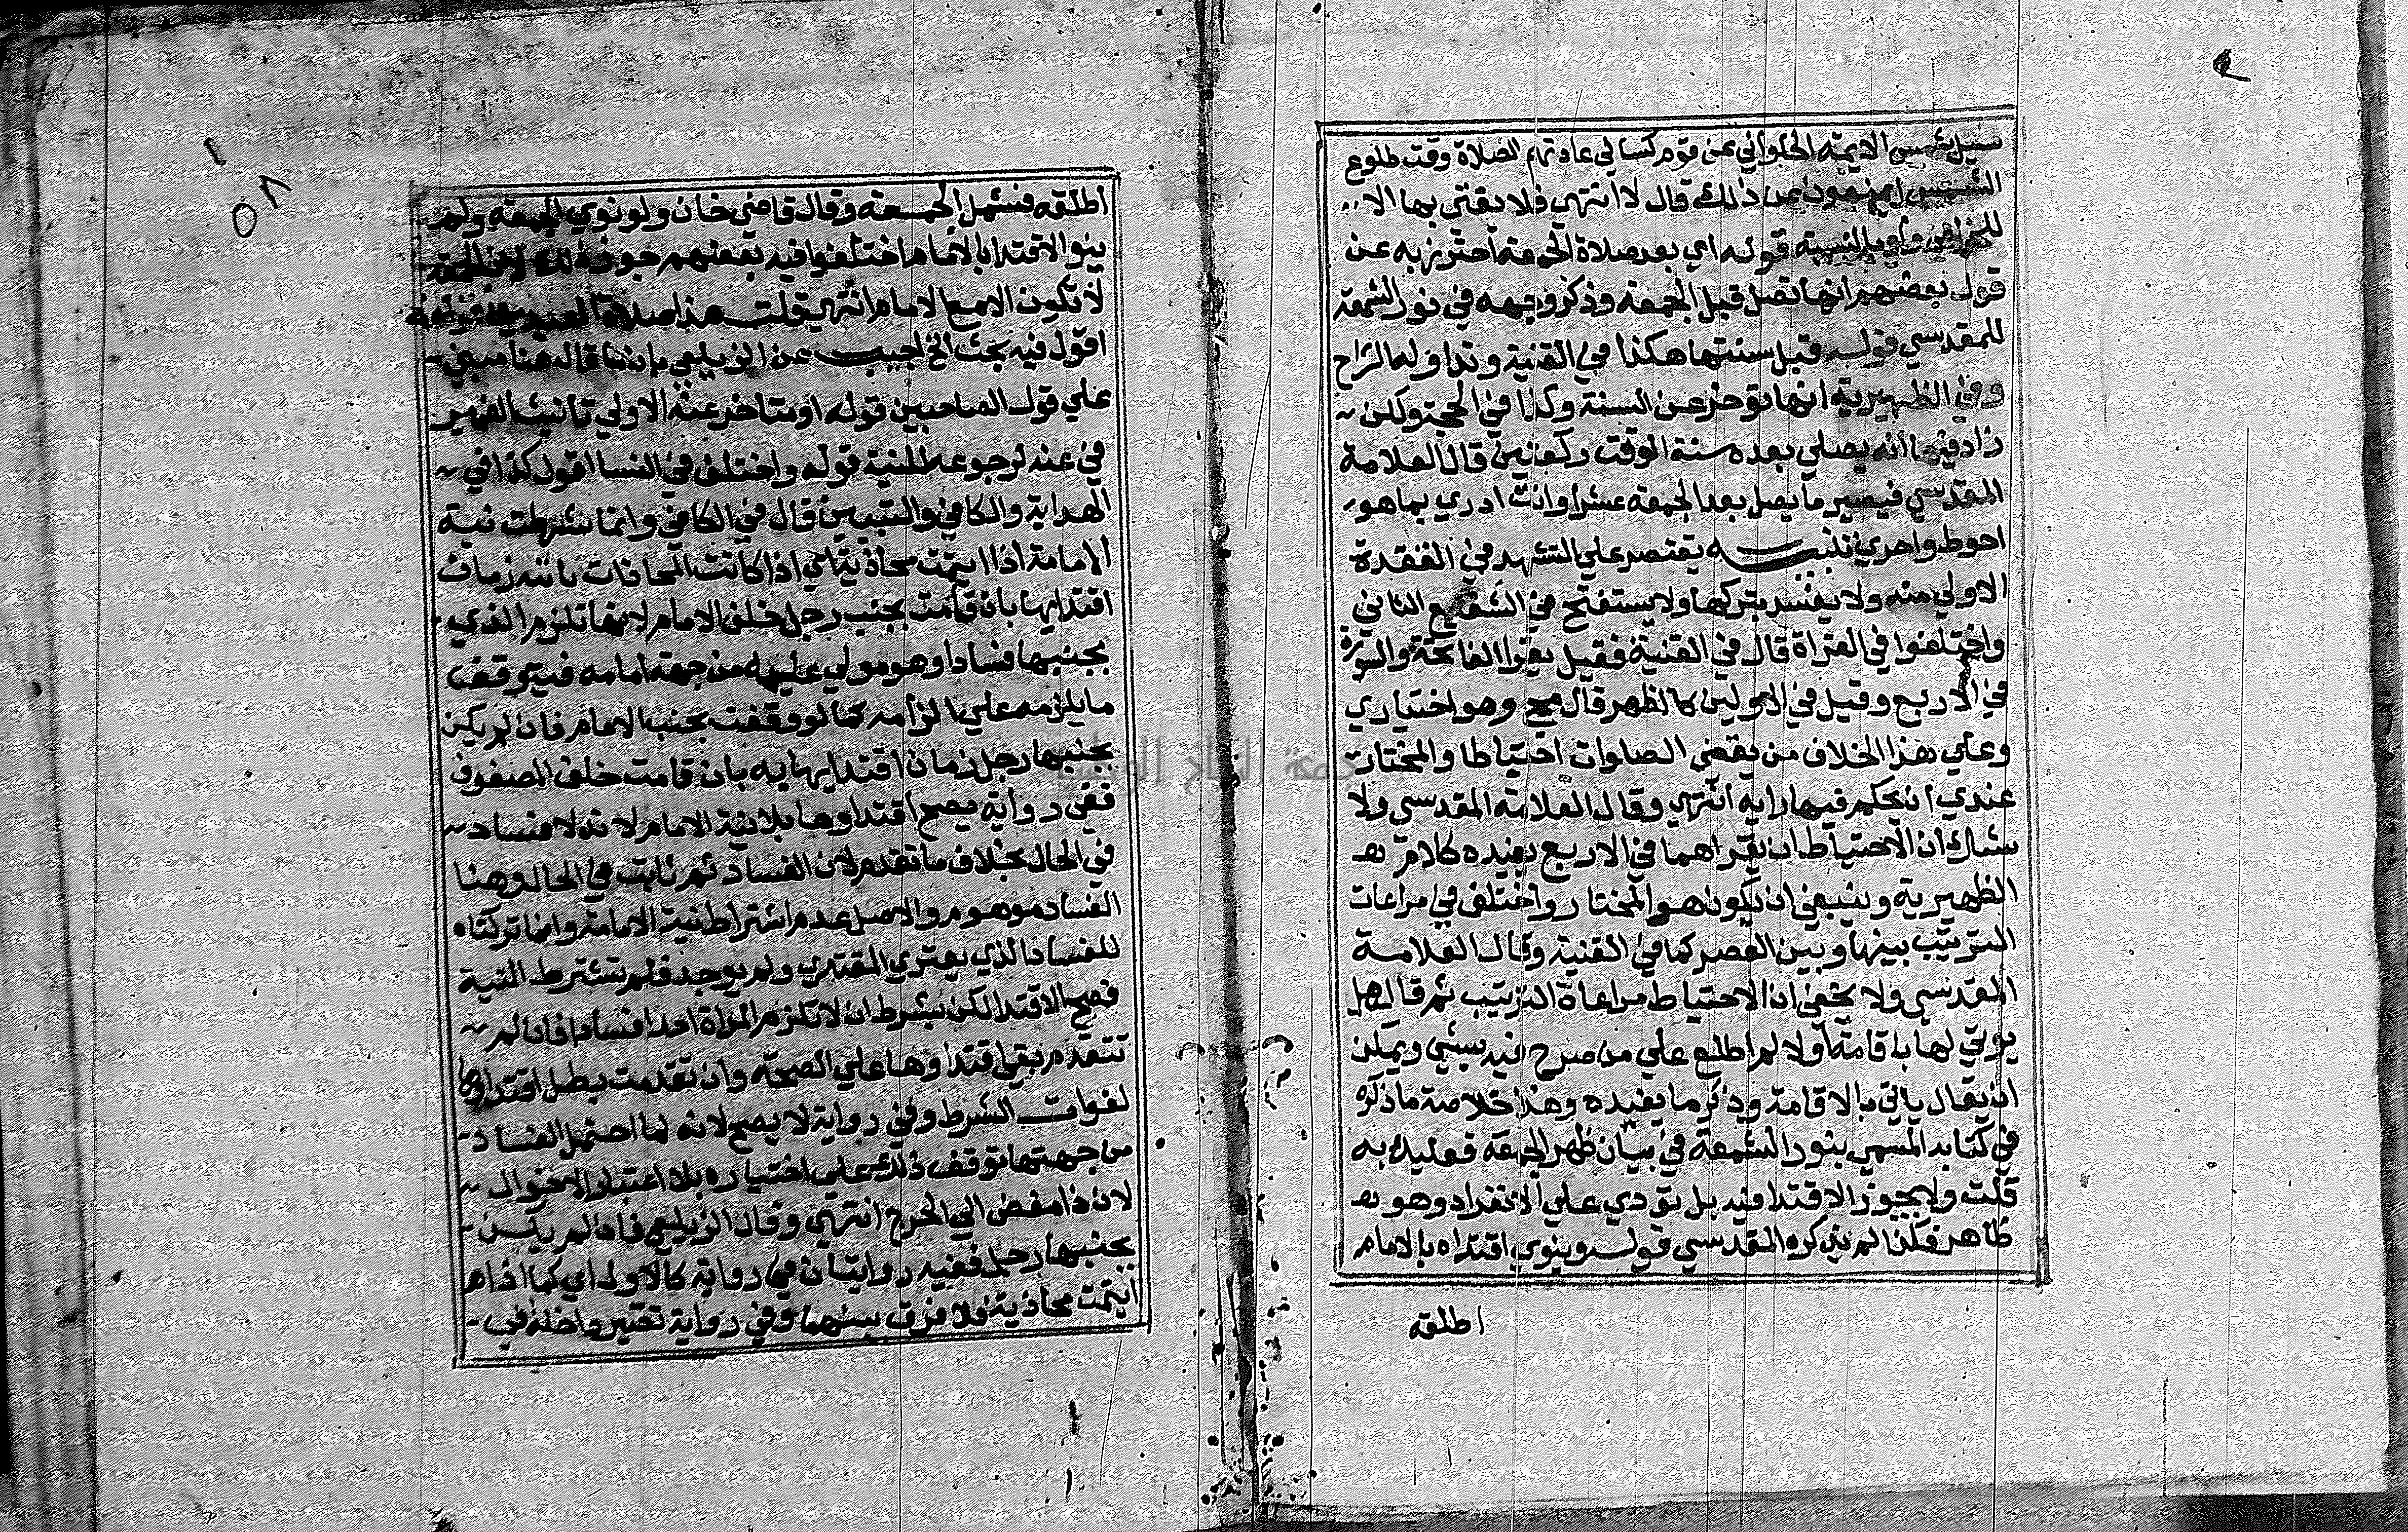 سيل شمس الايمة الحلواني عن قوم كسالي عادتهم الصلاة وقت طلوع
الشمس ايمنعون عن ذلك قال لا انتهي فلا يفتي بها الا
للخواص ولو بالنسبة قوله اي بعد صلاة الجمعة احترز به عن
قول بعضهم انها تصل قبل الجمعة وذكر وجهه في نور الشمعة
للمقدسي قوله قبل سنتها هكذا في القنية وتداوله الشراح
وفي الظهيرية انها توخر عن السنة وكذا في الحجة ولكن
زاد فيها انه يصلي بعده سنة الوقت ركعتين قال العلامة
المقدسي فيصير ما يصل بعد الجمعة عشرا وانت ادري بما هو
احوط واحري تنبيه يقتصر علي التشهد في القعدة
الاولي منه ولا يفسد بتركها ولا يستفتح في الشفع الثاني
واختلفوا في القراة قال في القنية فقيل يقرا الفاتحة والسورة
في الاربع وقيل في الاوليين كالظهر قال مج وهو اختياري
وعلي هذا الخلاف من يقضي الصلوات احتياطا والمختار
عندي ان يحكم فيها رايه انتهي وقال العلامة المقدسي ولا
شك ان الاحتياط ان يقراهما في الاربع يفيده كلام
الظهيرية وينبغي ان يكون هو المختار واختلف في مراعات
الترتيب بينها وبين العصر كما في القنية وقال العلامة
المقدسي ولا يخفي ان الاحتياط مراعاة الترتيب ثم قال هل
يوتي لها باقامة اولا لم اطلع علي من صرح فيه بشي ويمكن
ان يقال ياتي بالاقامة وذكر ما يفيده وهذا خلاصة ما ذكره
في كتابه المسمي بنور الشمعة في بيان ظهر الجمعة فعليك به
قلت ولا يجوز الاقتدا فيه بل تودي علي الانفراد وهو
ظاهر فلذا لم يذكره المقدسي قوله وينوي اقتداه بالامام
اطلقه
اطلقه فشمل الجمعة وقال قاضي خان ولو نوي الجمعة ولم
ينو الاقتدا بالامام اختلفوا فيه بعضهم جوز ذلك لان الجمعة
لا تكون الا مع الامام انتهي قلت هذا صلاة العيد
اقول فيه بحث الخ اجيب عن الزيلعي بان ما قاله هنا مبني
علي قول الصاحبين قوله او متاخر عنه الاولي تانيث الضمير
في عنه لرجوعه للنية قوله واختلف في النسا اقول كذا في
الهداية والكافي والتبيين قال في الكافي وانما شرطت نية
الامامة اذا ايتمت محاذية اي اذا كانت المحاذات ثابتة زمان
اقتدايها بان قامت بجنب رجل خلف الامام لانها تلزم الذي
بجنبها فسادا وهو مولي عليه من جهة امامه فيتوقف
ما يلزمه علي الزامه كما لو وقفت بجنب الامام فان لم يكن
بجنبها رجل زمان اقتدايها به بان قامت خلف الصفوف
ففي رواية يصح اقتداوها بلا نية الامام لانه لا فساد
في الحال بخلاف ما تقدم لان الفساد ثم ثابت في الحال وهنا
الفساد موهوم والاصل عدم اشتراط نية الامامة وانما تركناه
للفساد الذي يعتري المقتدي ولم يوجد فلم تشترط النية
فصح الاقتدا لكن بشرط ان لا تلزم المراة احدا فسادا فان لم
تتقدم بقي اقتداوها علي الصحة وان تقدمت بطل اقتداوها
لفوات الشرط وفي رواية لا يصح لانه لما احتمل الفساد
من جهتها توقف ذلك علي اختياره بلا اعتبار الاحوال
لان ذا مفض الي الحرج انتهي وقال الزيلعي فان لم يكن
بجنبها رجل ففيه روايتان في رواية كالاول اي كما اذا
ايتمت محاذية فلا فرق بينهما وفي رواية تصير داخلة في